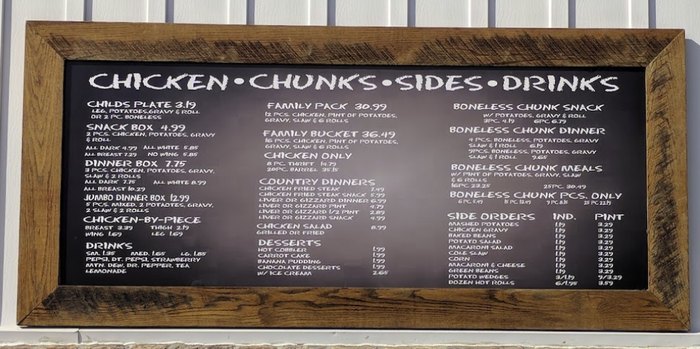 CHICKEN • CHUNKS • SIDES • DRINKS
CHILDS PLATE 3.19
LEG, POTATOES,GRAVY & ROLL
OR 2 PC. BONELESS
SNACK BOX 4.99
2 PCS. CHICKEN, POTATOES, GRAVY
& ROLL
ALL DARK 4.99 ALL WHITE 5.85
ALL BREAST 7.29 NO WING 5.85
DINNER BOX 7.75
3 PCS. CHICKEN, POTATOES, GRAVY,
SLAW & 2 ROLLS
ALL DARK 7.75 ALL WHITE 8.99
ALL BREAST 10.29
JUMBO DINNER BOX 12.99
5 PCS. MIXED, 2 POTATOES, GRAVY,
2 SLAW & 2 ROLLS
CHICKEN-BY-PIECE
BREAST 3.39 THIGH 2.19
WING 1.69 LEG 1.69
DRINKS
SM. 1.35 MED. 1.65 LG. 1.85
PEPSI, DT. PEPSI, STRAWBERRY
MTN. DEW, DR. PEPPER, TEA
LEMONADE
FAMILY PACK 30.99
12 PCS. CHICKEN, PINT OF POTATOES,
GRAVY, SLAW & 6 ROLLS
FAMILY BUCKET 36.49
PCS. CHICKEN, PINT OF POTATOES,
GRAVY, SLAW & ROLLS
CHICKEN ONLY
8 PC. THRIFT 14.79
20PC. BARREL 35.15
COUNTRY DINNERS
CHICKEN FRIED STEAK
CHICKEN FRIED STEAK SNACK
LIVER OR GIZZARD DINNER 6.99
LIVER OR GIZZARD PINT 4.99
LIVER OR GIZZARD 1/2 PINT 2.89
LIVER OR GIZZARD SNACK 4.99
CHICKEN SALAD 8.99
GRILLED OR FRIED
DESSERTS
HOT COBBLER 1.99
CARROT CAKE 1.99
BANANA PUDDING 1.99
CHOCOLATE DESSERTS 1.99
W/ ICE CREAM 2.65
BONELESS CHUNK SNACK
W/ POTATOES, GRAVY & ROLL
3PC. 4.75 6PC. 6.79
BONELESS CHUNK DINNER
4 PCS. BONELESS, POTATOES, GRAVY
SLAW & 1 ROLL
PCS. BONELESS, POTATOES, GRAVY
SLAW & 1 ROLL 9.65
BONELESS CHUNK MEALS
W/ PINT OF POTATOES, GRAVY, SLAW
& 6 ROLLS
25PC. 30.49
BONELESS CHUNK PCS. ONLY
SIDE ORDERS IND. PINT
MASHED POTATOES 1.19 3.29
CHICKEN GRAVY 1.19 3.29
BAKED BEANS 1.19 3.29
POTATO SALAD 1.19 3.29
MACARONI SALAD 1.19 3.29
COLE SLAW 1.19 3.29
CORN 1.19 3.29
MACARONI & CHEESE 1.19 3.29
GREEN BEANS 1.19 3.29
POTATO WEDGES
DOZEN HOT ROLLS 6/1.95 3.59